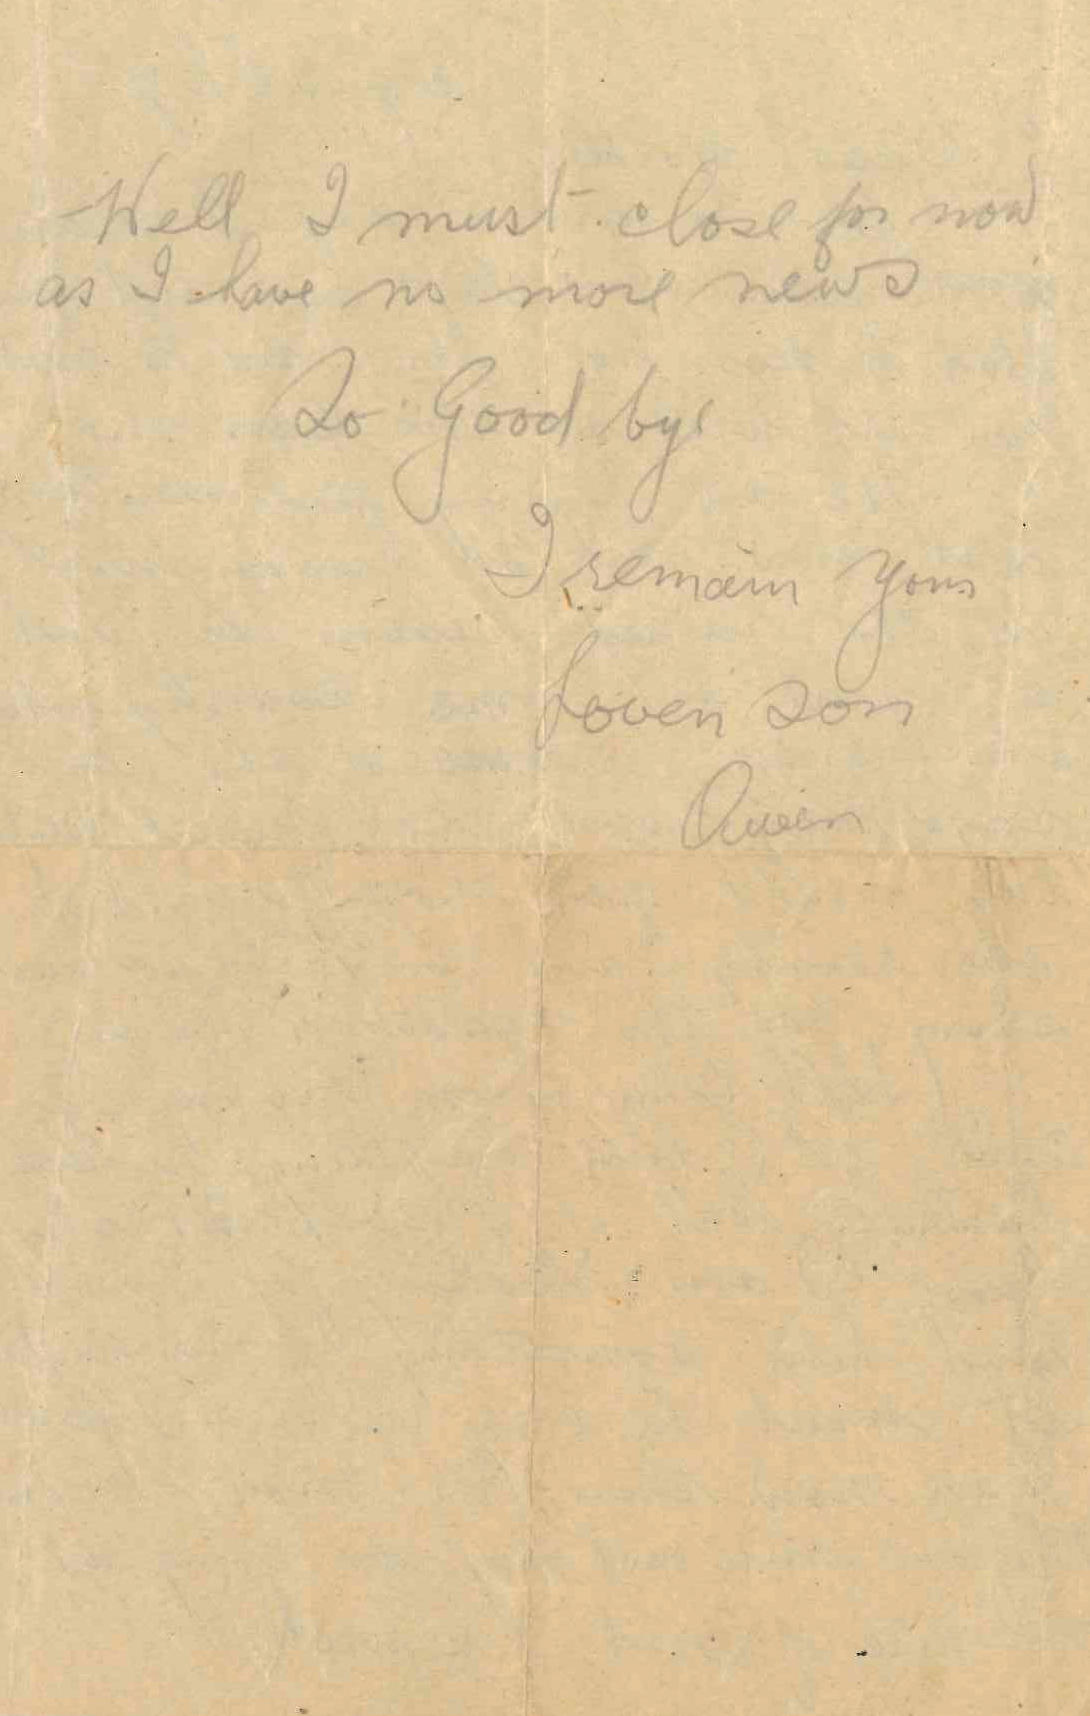 Well I must close for now
as I have no more news
So Good bye
I remain your
Loven son
Owen